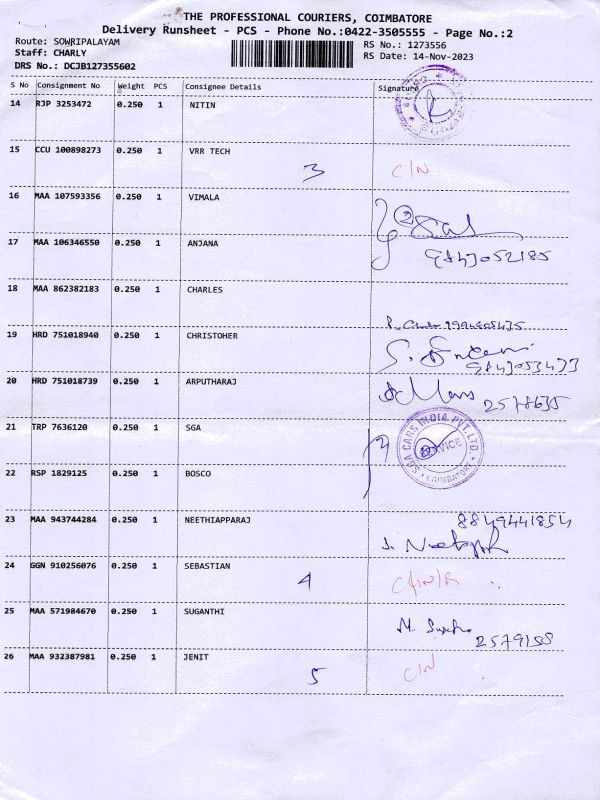 THE PROFESSIONAL COURIERS, COIMBATORE
Delivery Runsheet - PCS - Phone No.:0422-3505555 - Page No.:2
Route: SOWRIPALAYAM
Staff: CHARLY
DRS No.: DCJB127355602
RS No.: 1273556
RS Date: 14-Nov-2023
S No Consignment No Weight PCS Consignee Details Signature
14 RJP 3253472 0.250 1 NITIN
15 CCU 100898273 0.250 1 VRR TECH
3 C/N
16 MAA 107593356 0.250 1 VIMALA
2
17 MAA 106346550 0.250 1 ANJANA
9843052185
18 MAA 862382183 0.250 1 CHARLES
19 HRD 751018940 0.250 1 CHRISTOHER
9843053433
20 HRD 751018739 0.250 1 ARPUTHARAJ
2578635
21 TRP 7636120 0.250 1 SGA
SGA CARS INDIA PVT.LTD.
SERVICE
COIMBATORE
22 RSP 1829125 0.250 1 BOSCO
23 MAA 943744284 0.250 1 NEETHIAPPARAJ
8849441854
24 GGN 910256076 0.250 1 SEBASTIAN
4
25 MAA 571984670 0.250 1 SUGANTHI
2579158
26 MAA 932387981 0.250 1 JENIT
5 C/N